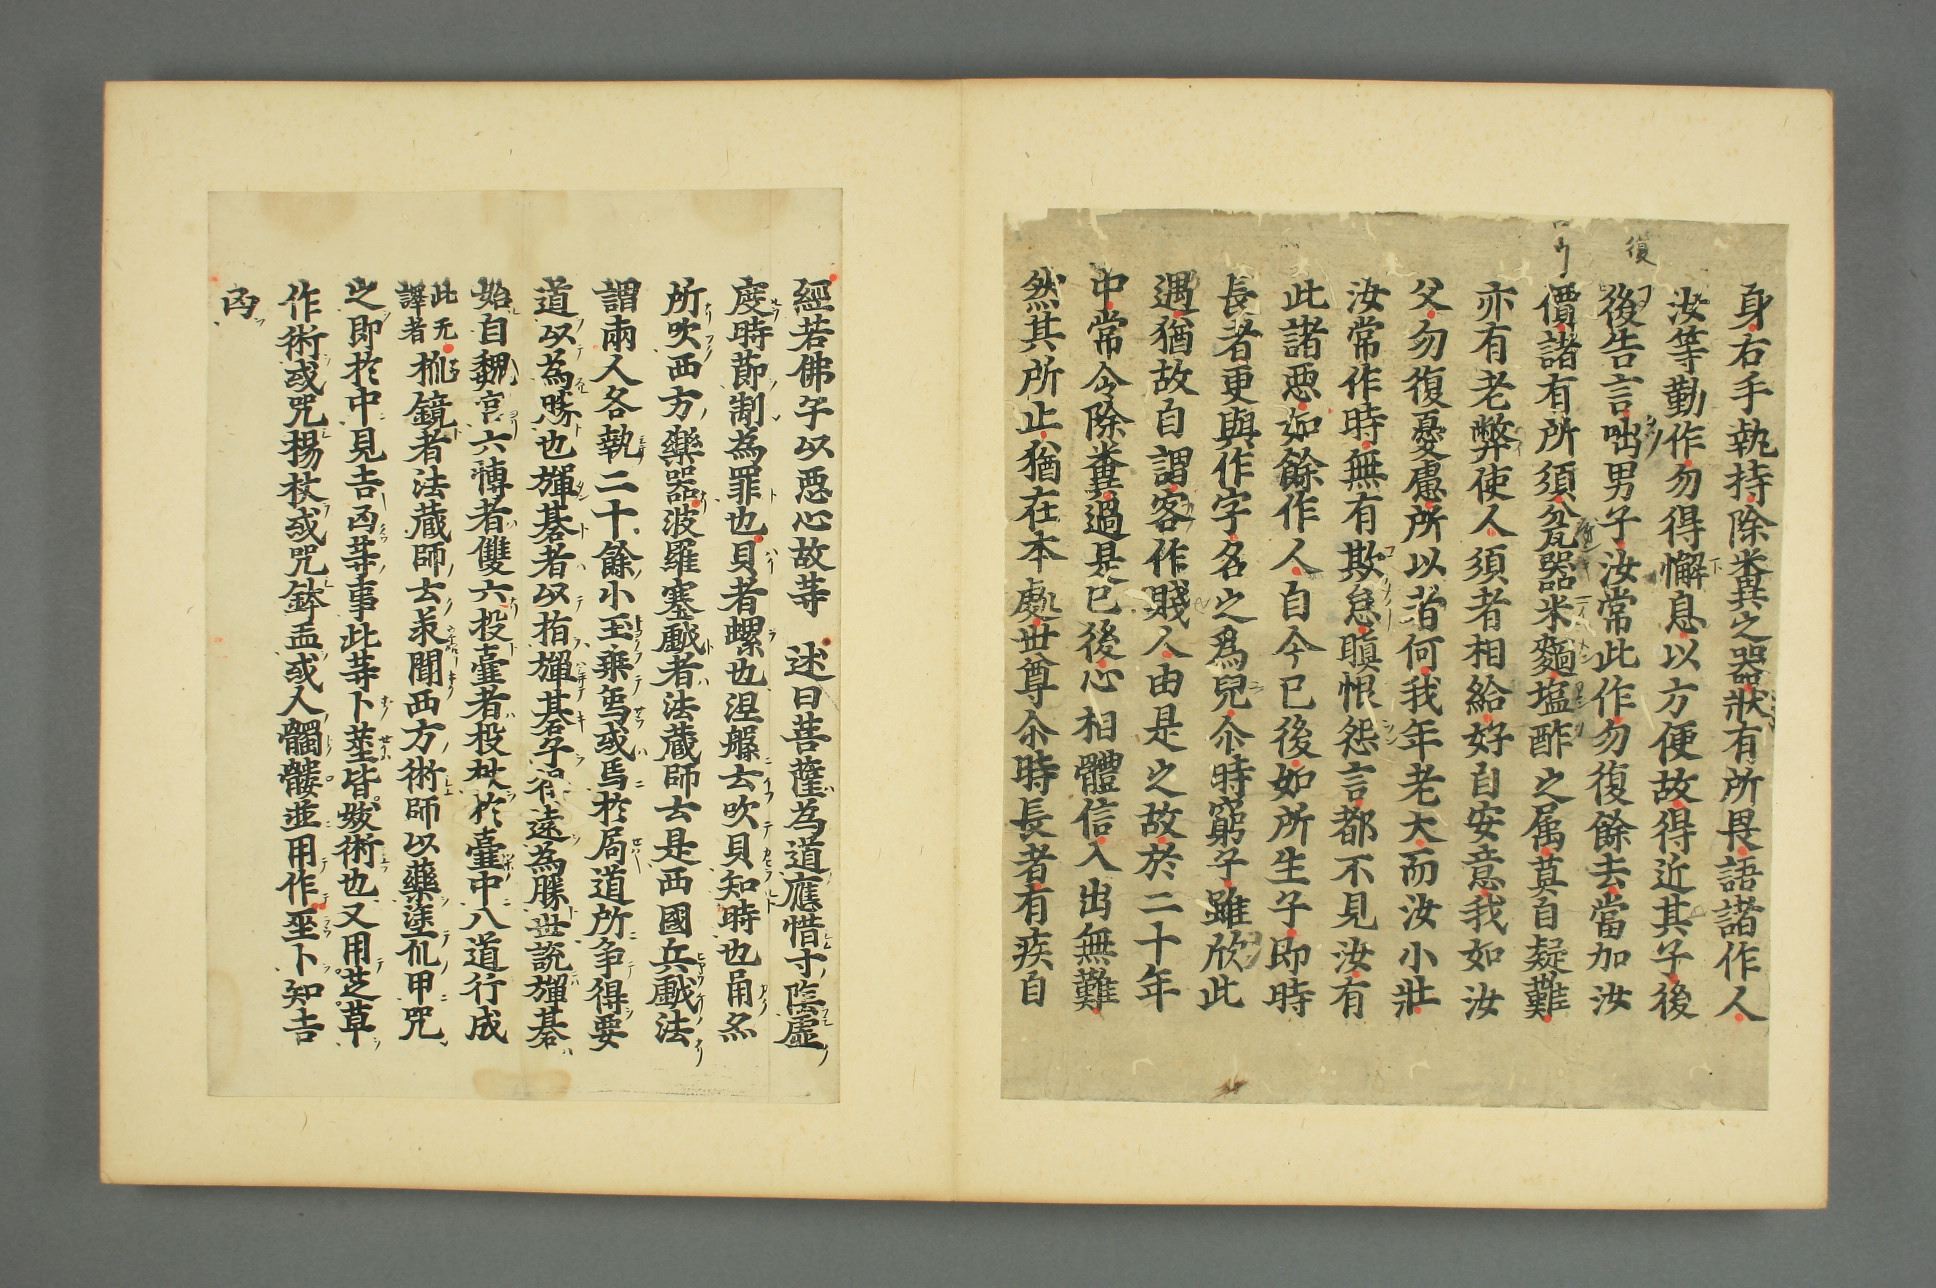 復
身右手執持除糞之器狀有所畏語諸作人
汝等勤作勿得懈息以方便故得近其子後
後告言咄男子汝常此作勿復餘去當加汝
價諸有所須瓫器米麵塩酢之属莫自疑難
亦有老弊使人須者相給好自安意我如汝
父勿復憂慮所以者何我年老大而汝小壯
汝常作時無有欺怠瞋恨怨言都不見汝有
此諸惡如餘作人自今已後如所生子即時
長者更與作字名之為兒尒時窮子雖欣此
遇猶故自謂客作賤人由是之故於二十年
中常令除糞過是已後心相體信入出無難
然其所止猶在本處世尊尒時長者有疾自
經若佛子以惡心故䓁 述曰菩薩為道應惜寸陰虛
度時莭制為罪也貝者螺也涅槃云吹貝知時也角名
所吹西方樂器波羅塞戲者法蔵師云是西國兵戲法
謂兩人各執二十餘小玉乘鳥或馬於局道所争得要
道以為勝也彈碁者以指彈碁子得遠為勝世說彈碁
始自魏宫六博者雙六投壷者投杖於壷中八道行成
此无譯者 抓鏡者法蔵師云承聞西方術師以藥塗爪甲咒
之即於中見吉凶䓁事此䓁卜莖皆妖術也又用芝草
作術或咒楊杖或咒鉢盂或人髑髏並用作莖卜知吉
凶